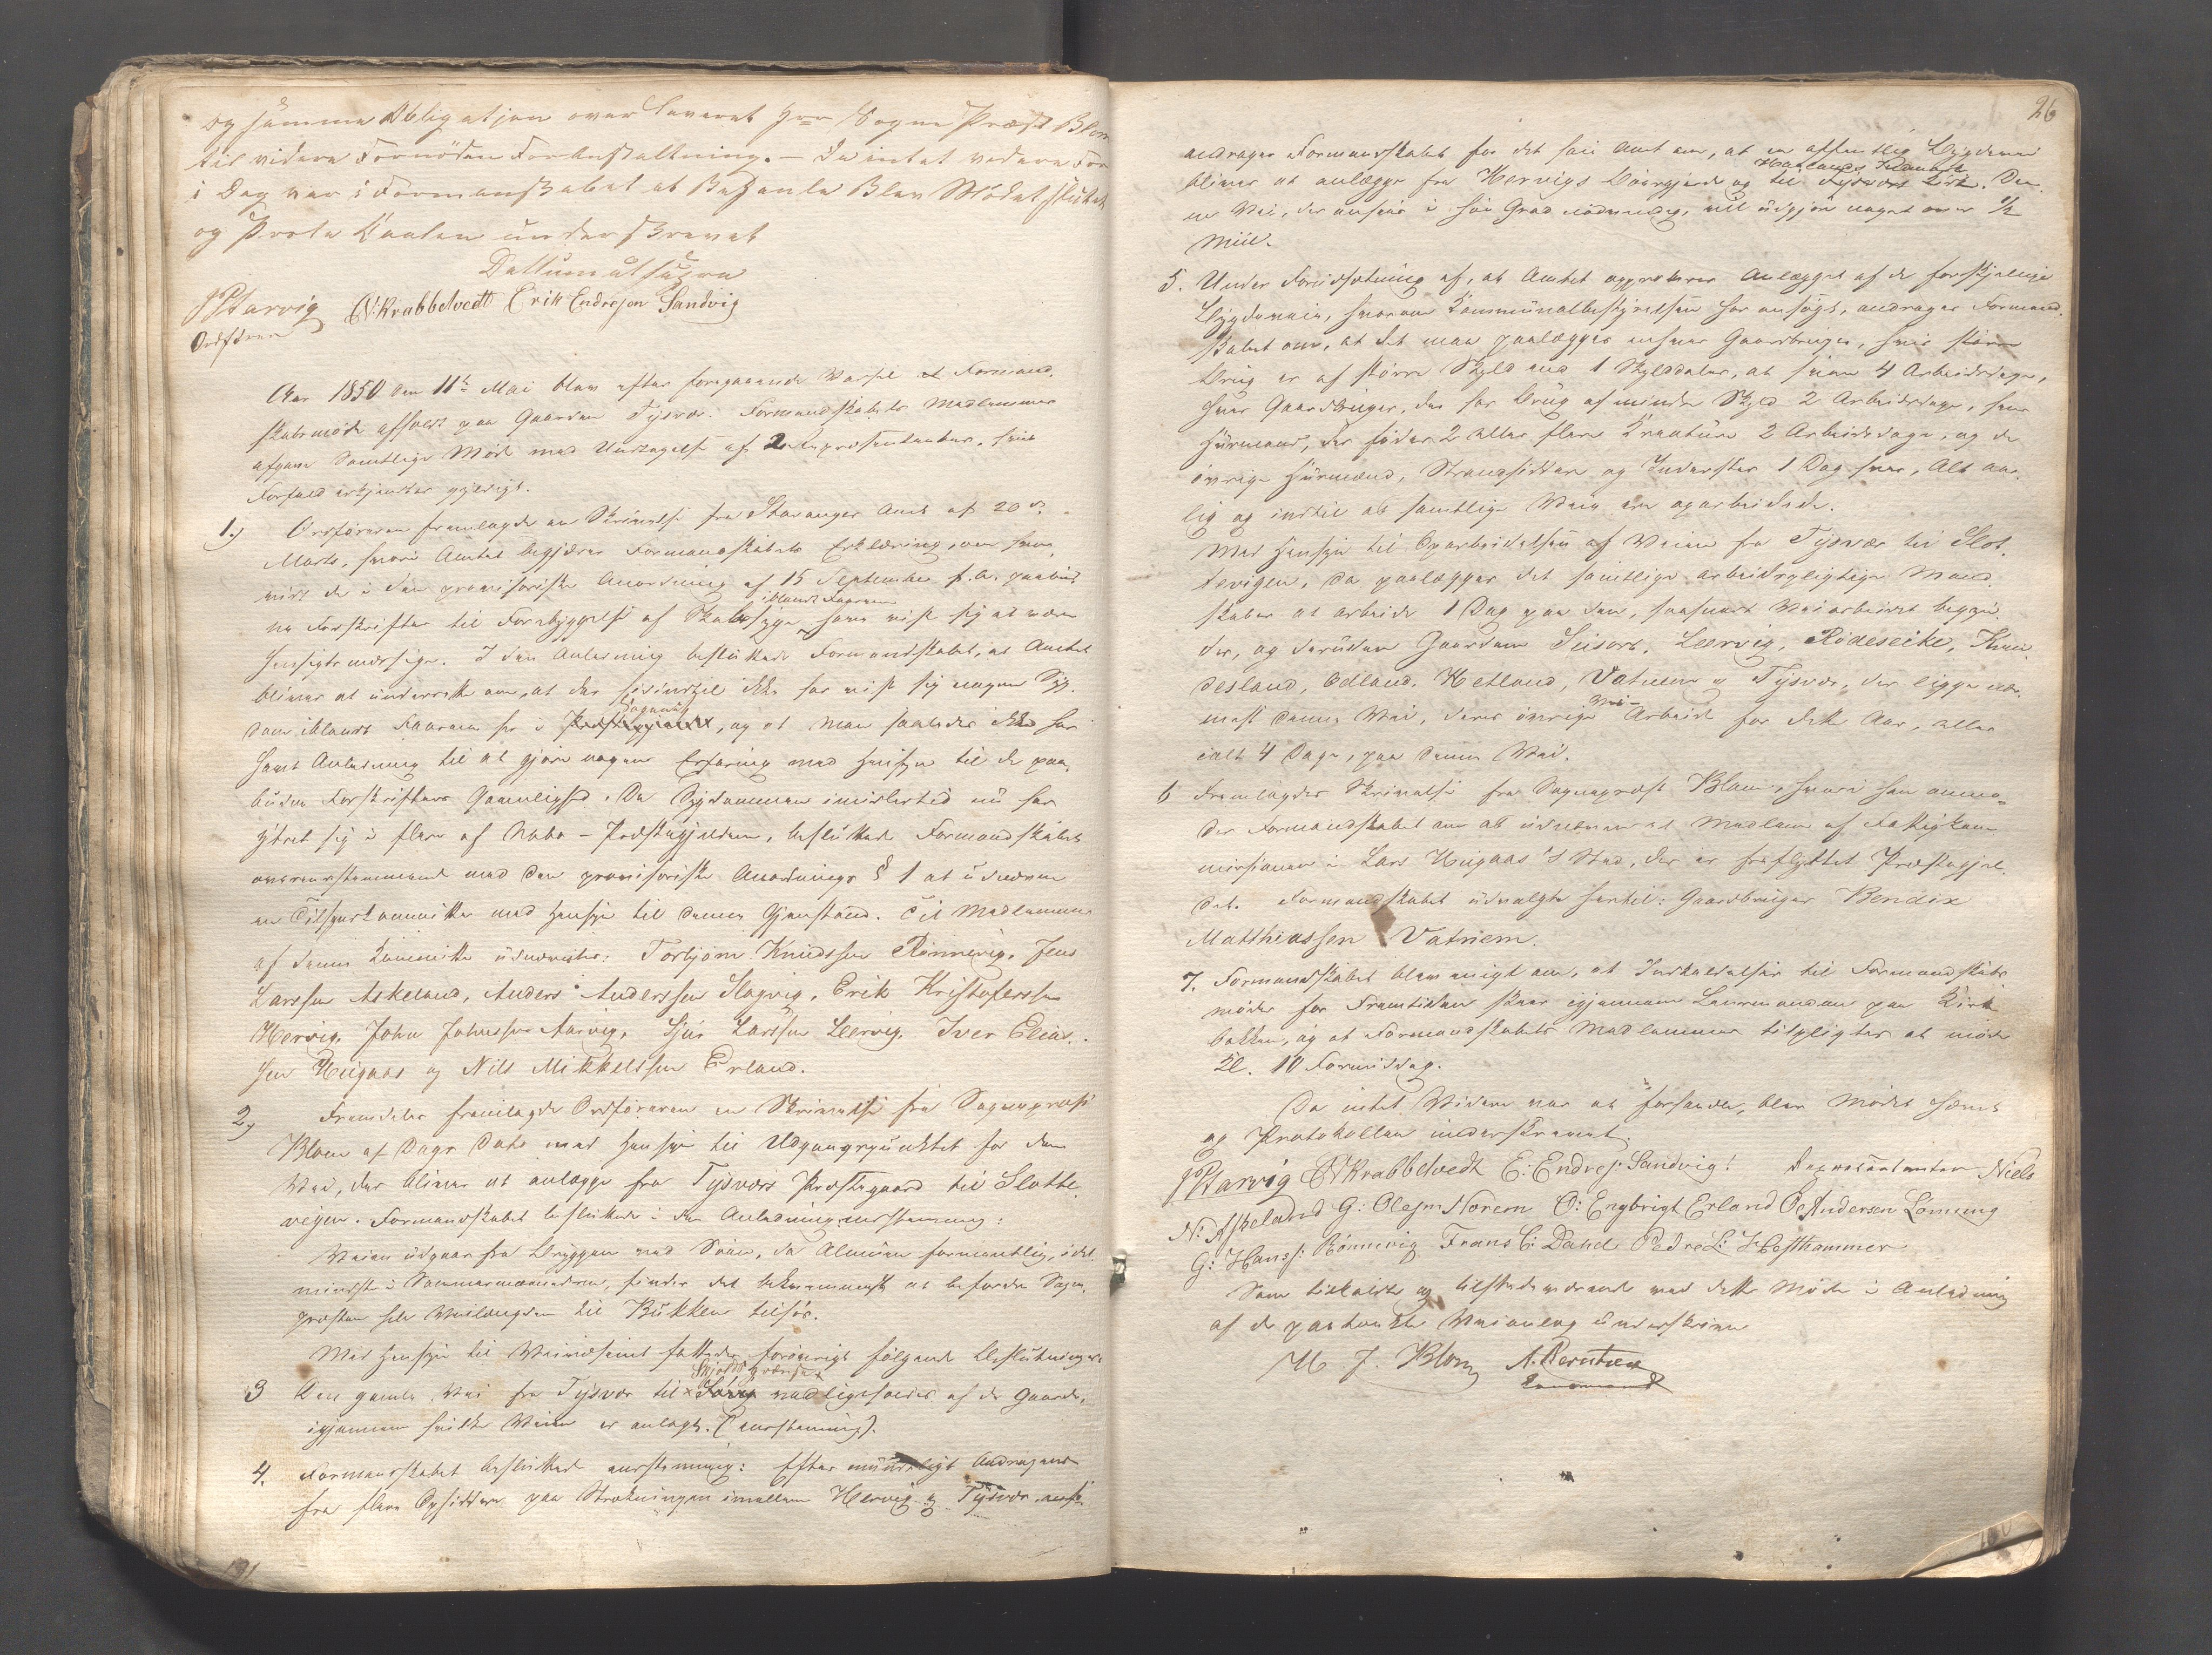 og samme Obligatjon over laveret Hrr Sogne Præst Blom
til videre Fornøden Foranstaltning. — Da intet vedere For
i Dag var i Formanskabet at Behanle Blev Mødet slutet
og Protokaalen underskrevet
Dattum utsupra
Ordfører
N Krabbetvedt Erik Endresen Sandvig
Aar 1850 den 11te Mai blev efter foregaaende Varsel et Formand-
skabsmøde afholdt paa Gaarden Tysvær. Formandskabets Medlemmer
afgave Samtlige Møde med Undtagelse af 2 Repræsentanter, hvis
Forfald erkjendtes gyldigt.
1.) Ordføreren fremlagde en Skrivelse fra Stavanger Amt af 20de
Marts, hvori Amtet begjærer Formandskabets Erklæring, om hvor-
vidt de i den provisoriske Anordning af 15 September f. A. paabud-
ne Forskrifter til Forebyggelse af Skabsyge iblandt Faarene have vist sig at være
hensigtsmæssige. I den Anledning besluttede Formandskabet, at Amtet
bliver at underrette om, at der hidindtil ikke har vist sig nogen Syg-
dom iblandt Faarene her i Sognet, og at Man saaledes ikke har
havt Anledning til at gjøre nogen Erfaring med Hensyn til de paa-
budne Forskrifters Gavnlighed. Da Sygdommen imidlertid nu har
ytret sig i flere af Nabo-Præstegjeldene, besluttede Formandskabet
overensstemmende med den provisoriske Anordnings § 1 at udnævne
en Tilsynskommitte med Hensyn til denne Gjenstand. Til Medlemmer
af denne Kommitte udnævntes: Torbjørn Knudssen Rønnevig, Jens
Larssen Askeland, Anders Anderssen Slogvig, Erik Kristoferssen
Hervig, John Johnssen Aarvig, Sjur Larssen Leervig, Iver Elias-
sen Heigaas og Nils Mikkelssen Erland.
2) Fremdeles fremlagde Ordføreren en Skrivelse fra Sognepræst
Blom af Dags Dato med Hensyn til Udgangspunktet for den
Vei, der bliver at anlægge fra Tysværs Præstegaard til Slotte-
vigen. Formandskabet besluttede i den Anledning eenstemmig:
Veien udgaar fra Bryggen ved Søen, da Almuen formentlig, i det
mindste i Sommermaanederne, finder det bekvemmest at befordre Sogne-
præsten hele Veilængden til Bukken tilsøs.
Med Hensyn til Veivæsenet fattedes forøvrigt følgende Beslutninger:
3 Den gamle Vei fra Tysvær til Skjolds Grændse vedligeholdes af de Gaarde,
igjennem hvilke Veien er anlagt. (eenstemmig).
4. Formandskabet besluttede eenstemmig: Efter mundtligt Andragende
fra flere Opsiddere paa Strækningen imellem Hervig og Tysvær
26
andrager Formandskabet for det høie Amt om, at en offentlig Bygdevei
bliver at anlægge fra Hervigs til Tysvær Kirke. Den-
ne Vei, der ansees i høi Grad nødvendig, vil udgjøre noget over 1/2
Miil.
5. Under Forudsætning af, at Amtet approberer Anlægget af de forskjellige
Bygdeveie, hvorom Kommunalbestyrelsen har ansøgt, andrager Formand-
skabet om, at det maa paalægges enhver Gaardbruger, hvis større
Brug er af større Skyld end 1 Skylddaler, at hjem 4 Arbeidsdage,
hver Gaardbruger, der har Brug af mindre Skyld 2 Arbeidsdage, hver
Huusmand, der føder 2 eller flere Kreature 2 Arbeidsdage, og de
øvrige Huusmænd, Strandsiddere og Inderster 1 Dag hver, Alt aar-
lig og indtil at samtlige Veie ere oparbeidede.
Med Hensyn til Oparbeidelsen af Veien fra Tysvær til Slot-
tevigen, da paalægges det samtlige arbeidspligtige Mand-
skaber at arbeide 1 Dag paa den, saasnart Veiarbeidet begyn-
der, og desuden Gaardene Seisors, Leervig, Rødeseike, Knu-
desland, Ødland, Hetland, Vatnem og Tysvær, der ligge nær-
mest denne Vei, deres øvrige Vei-Arbeide for dette Aar, eller
ialt 4 Dage, paa denne Vei.
6 Fremlagdes Skrivelse fra Sognepræst Blom, hvori han anmo-
der Formandskabet om at udnævne et Medlem af Fattigkom-
missionen i Lars Heigaas's Sted, der er fraflyttet Præstegjel-
det. Formandskabet udvalgte hertil: Gaardbruger Bendix
Matthiassen Vatnem.
7. Formandskabet blev enigt om, at Indkaldelser til Formandskabs
møder for Fremtiden skeer igjennem Lensmanden paa Kirke-
bakken, og at Formandskabets Medlemmer tilpligtes at møde
Kl. 10 Formiddag.
Da intet Videre var at forhandle, blev Mødet hævet
og Protokollen underskrevet.
N Krabbetvedt E: Endres: Sandvig: Repræsentanter Niels
N: Askeland G: Olesen Norem O: Engbrigt Erland O Andersen Lønning
G: Hanss: Rönnevig Frans C: Dahl Peder L: Hosthammer
Som tilkaldte og tilstedeværende ved dette Møde i Anledning
af de paatænkte Veianlæg underskrive
M J. Blom A. Berntsen
Lensmand